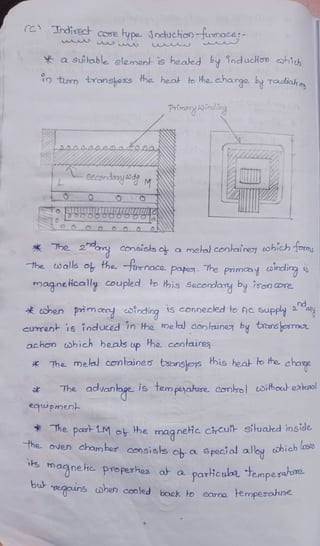 (C) Indirect core type Induction-furnace:-
* a suitable element is heated by induction which
in turn transfers the heat to the charge by radiation
Primary winding
Secondary wdg
L M
* The 2ndary consists of a metal container which forms
the walls of the furnace paper. The primary winding is
magnetically coupled to this secondary by iron core.
* when primary winding is connected to A.C supply 2ndary
current is induced in the metal container by transformer
action which heats up the container.
* The metal container transfers this heat to the charge
* The advantage is temperature control without external
equipment.
* The part LM of the magnetic circuit situated inside
the oven chamber consists of a special alloy which loses
its magnetic properties at a particular temperature
but regains when cooled back to same temperature